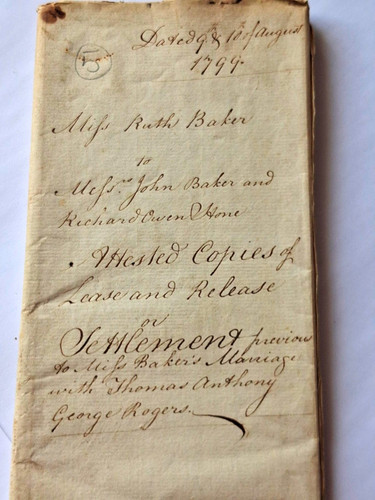 5
Dated 9 & 10 of August
1799.
Miss Ruth Baker
to
Mess.rs John Baker and
Richard Owen Stone
Attested Copies of
Lease and Release
or
Settlement previous
to Miss Baker's Marriage
with Thomas Anthony
George Rogers.